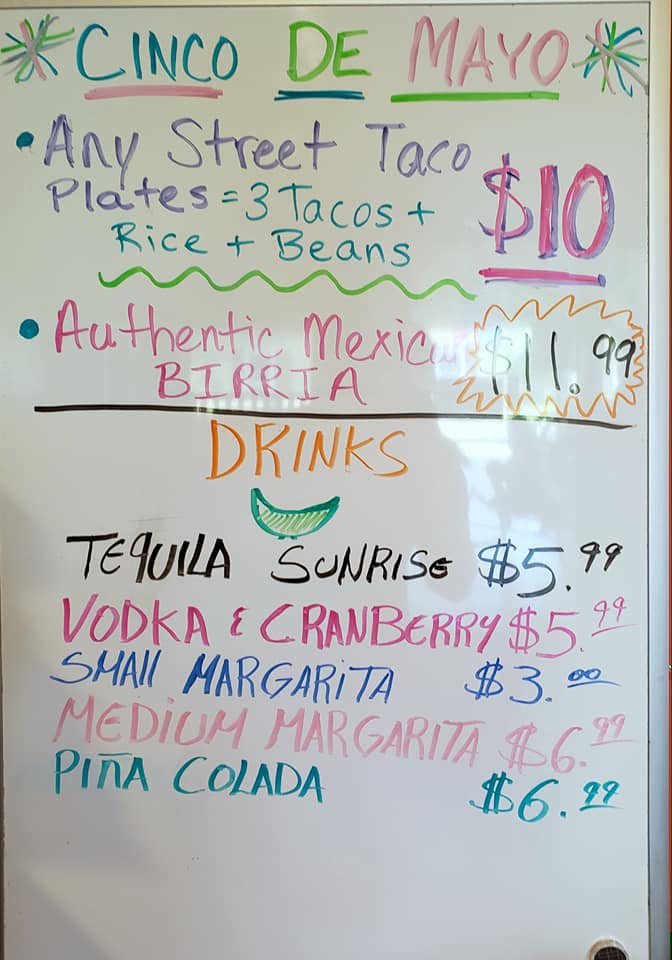 CINCO DE MAYO
• Any Street Taco
Plates = 3 Tacos +
Rice + Beans
$10
• Authentic Mexican
BIRRIA
$11.99
DRINKS
TEQUILA SUNRISE $5.99
VODKA & CRANBERRY $5.99
SMAll MARGARITA $3.00
MEDIUM MARGARITA $6.99
PIÑA COLADA $6.99